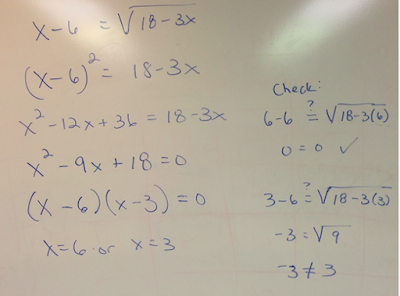 x-6 = √18-3x
(x-6)² = 18-3x
x²-12x+36 = 18-3x
x²-9x+18=0
(x-6)(x-3)=0
x=6 or x=3
Check:
6-6 ≟ √18-3(6)
0=0 ✓
3-6 ≟ √18-3(3)
-3 = √9
-3 ≠ 3